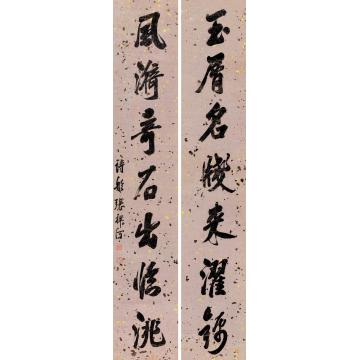 玉屑名牋来濯錦
風漪奇石出臨洮
詩舲張祥河